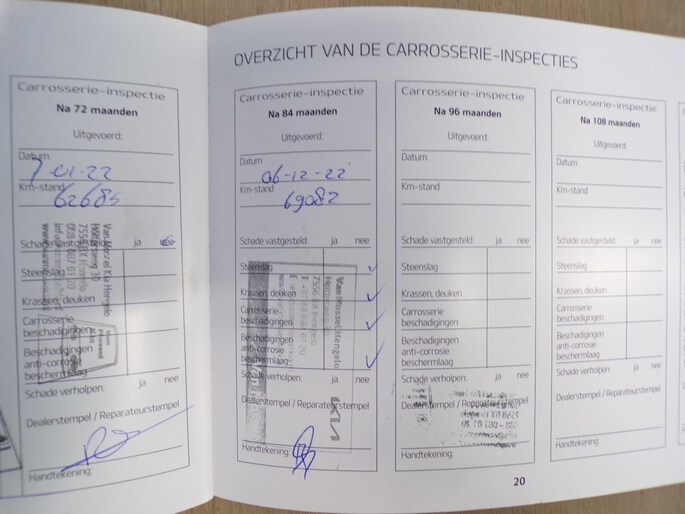 OVERZICHT VAN DE CARROSSERIE-INSPECTIES
Carrosserie-inspectie
Na 72 maanden
Uitgevoerd:
Datum
7-01-22
Km-stand
62685
Schade vastgesteld: ja nee
Steenslag
Krassen, deuken
Carrosserie
beschadigingen
Beschadigingen
anti-corrosie
beschermlaag
Schade verholpen: ja nee
Dealerstempel / Reparateurstempel
Handtekening:
Carrosserie-inspectie
Na 84 maanden
Uitgevoerd:
Datum
06-12-22
Km-stand
69082
Schade vastgesteld: ja nee
Steenslag
Krassen, deuken
Carrosserie
beschadigingen
Beschadigingen
anti-corrosie
beschermlaag
Schade verholpen: ja nee
Dealerstempel / Reparateurstempel
KIA
Handtekening:
Carrosserie-inspectie
Na 96 maanden
Uitgevoerd:
Datum
Km-stand
Schade vastgesteld: ja nee
Steenslag
Krassen, deuken
Carrosserie
beschadigingen
Beschadigingen
anti-corrosie
beschermlaag
Schade verholpen: ja nee
Dealerstempel / Reparateurstempel
Handtekening:
Carrosserie-inspectie
Na 108 maanden
Uitgevoerd:
Datum
Km-stand
Schade vastgesteld: ja nee
Steenslag
Krassen, deuken
Carrosserie
beschadigingen
Beschadigingen
anti-corrosie
beschermlaag
Schade verholpen: ja nee
Dealerstempel / Reparateurstempel
Handtekening:
20